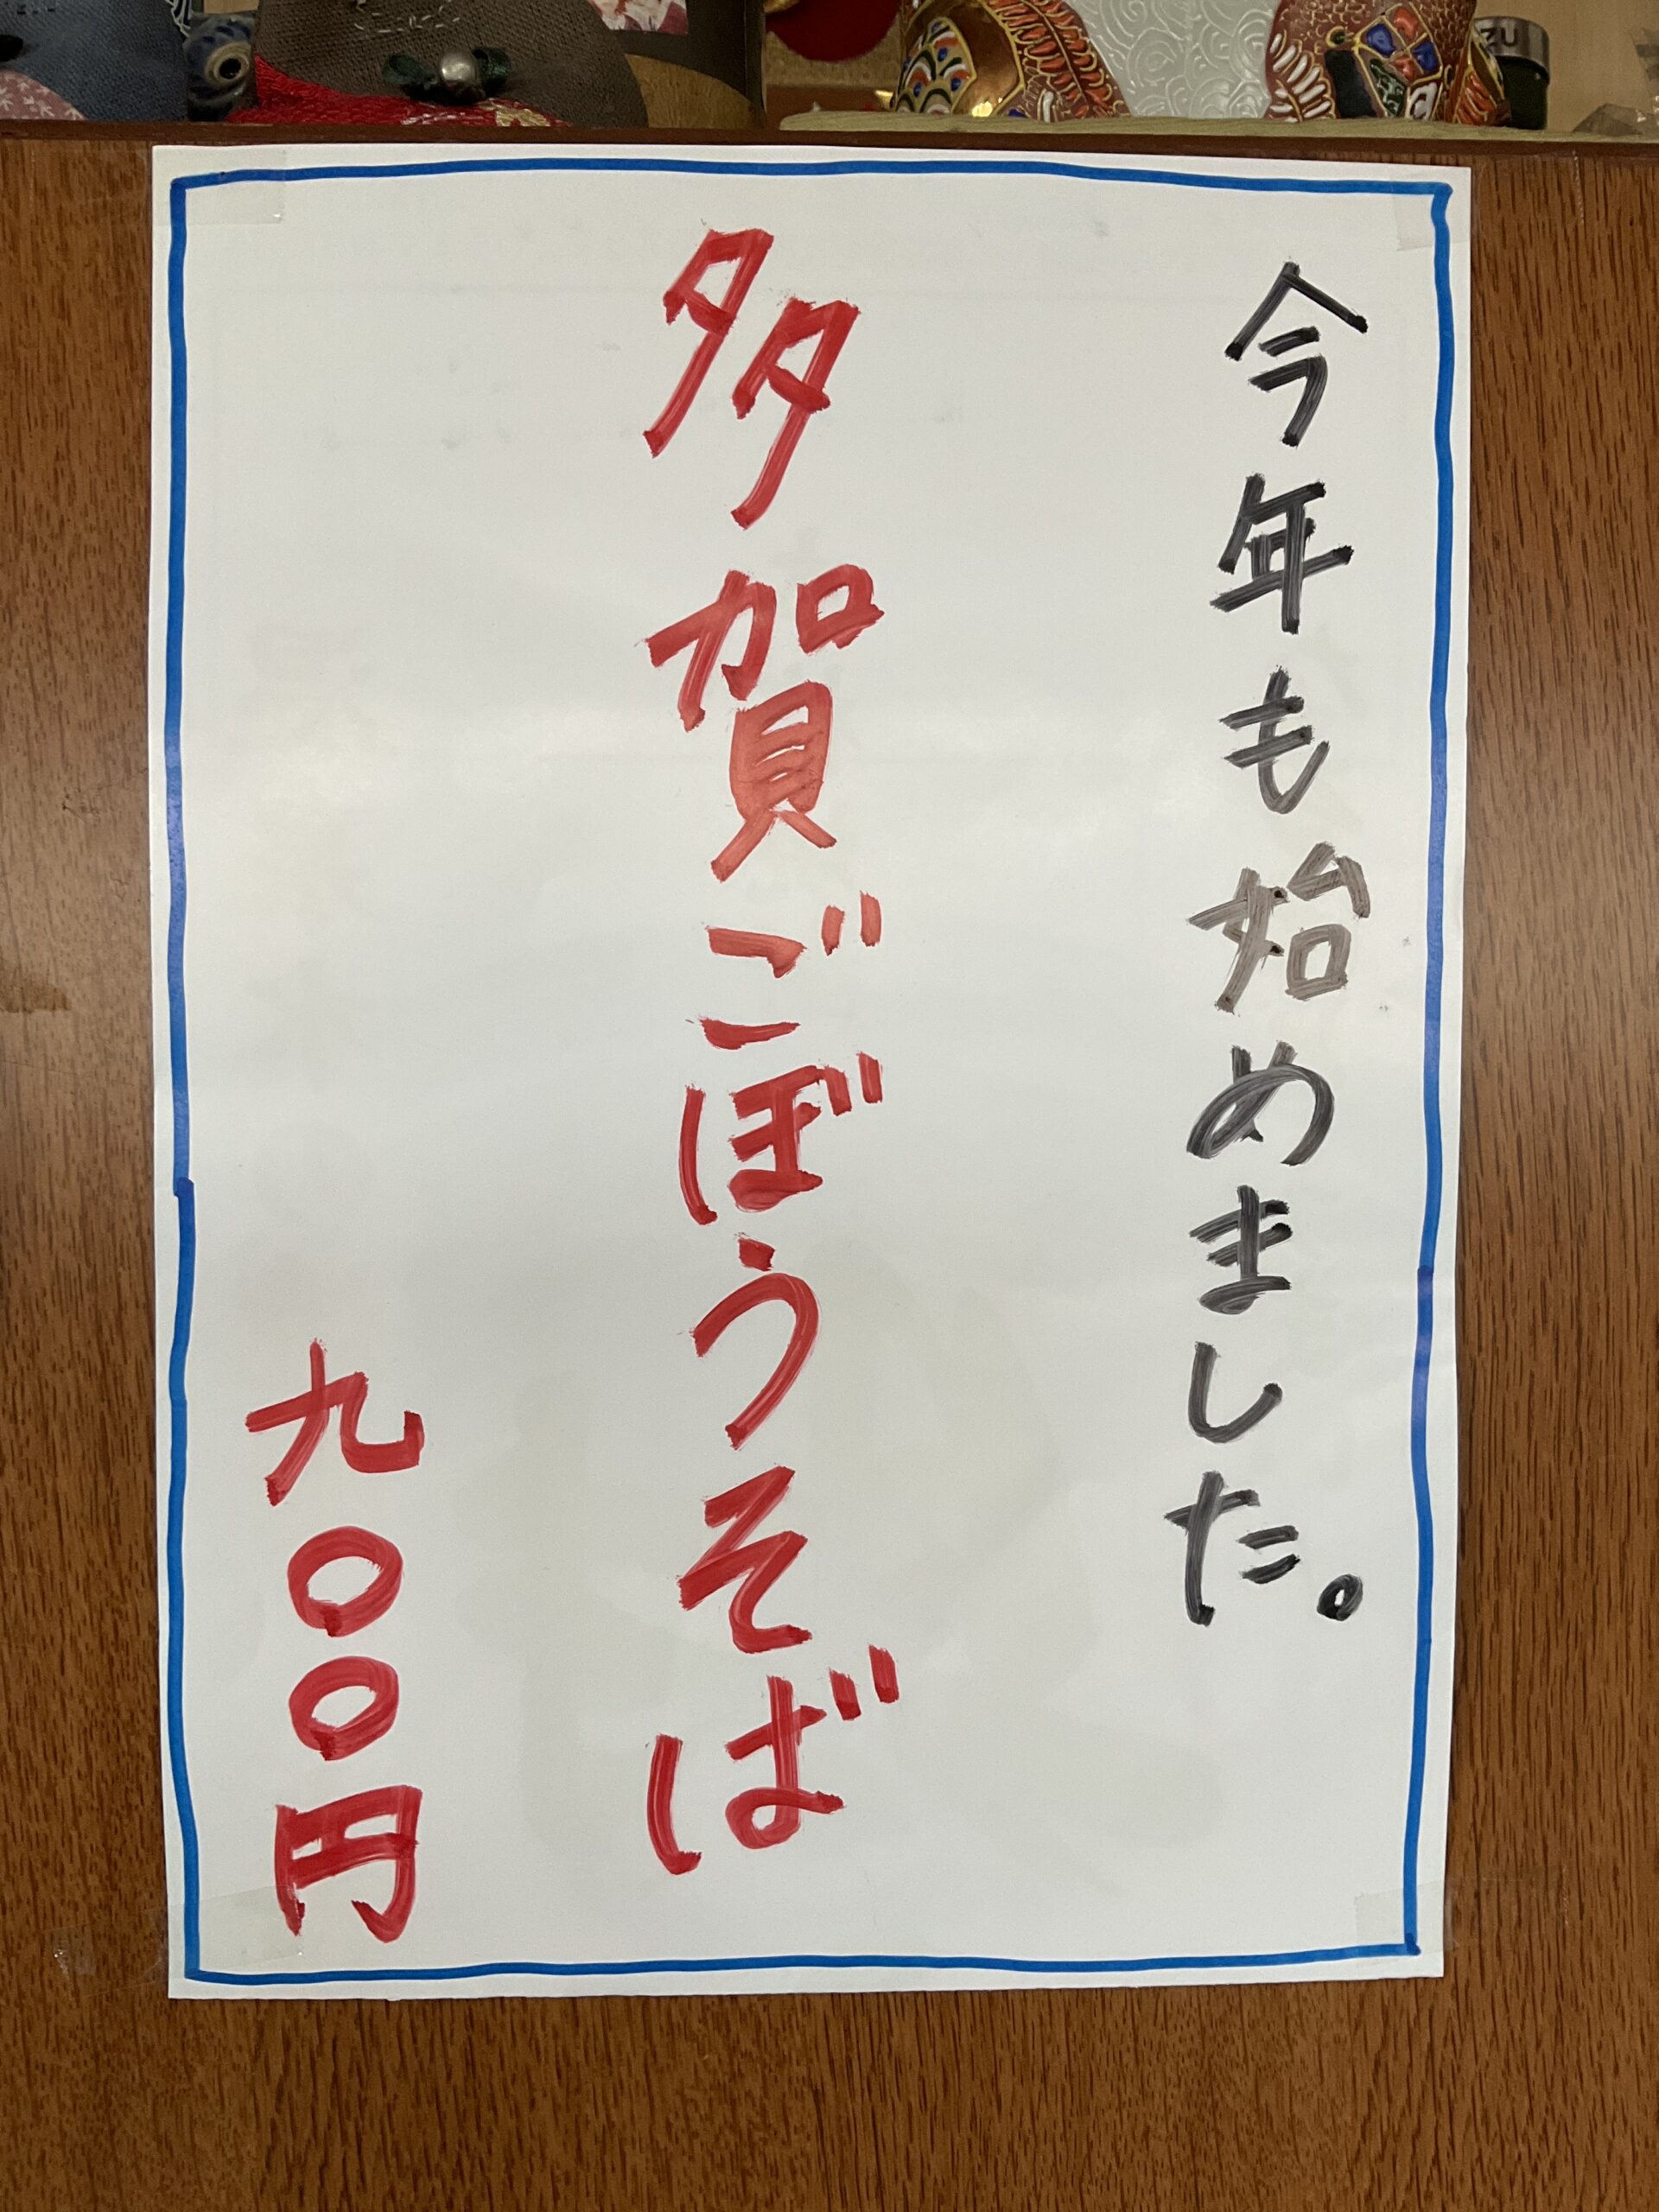 今年も始めました。
多賀ごぼうそば
九〇〇円
ZU